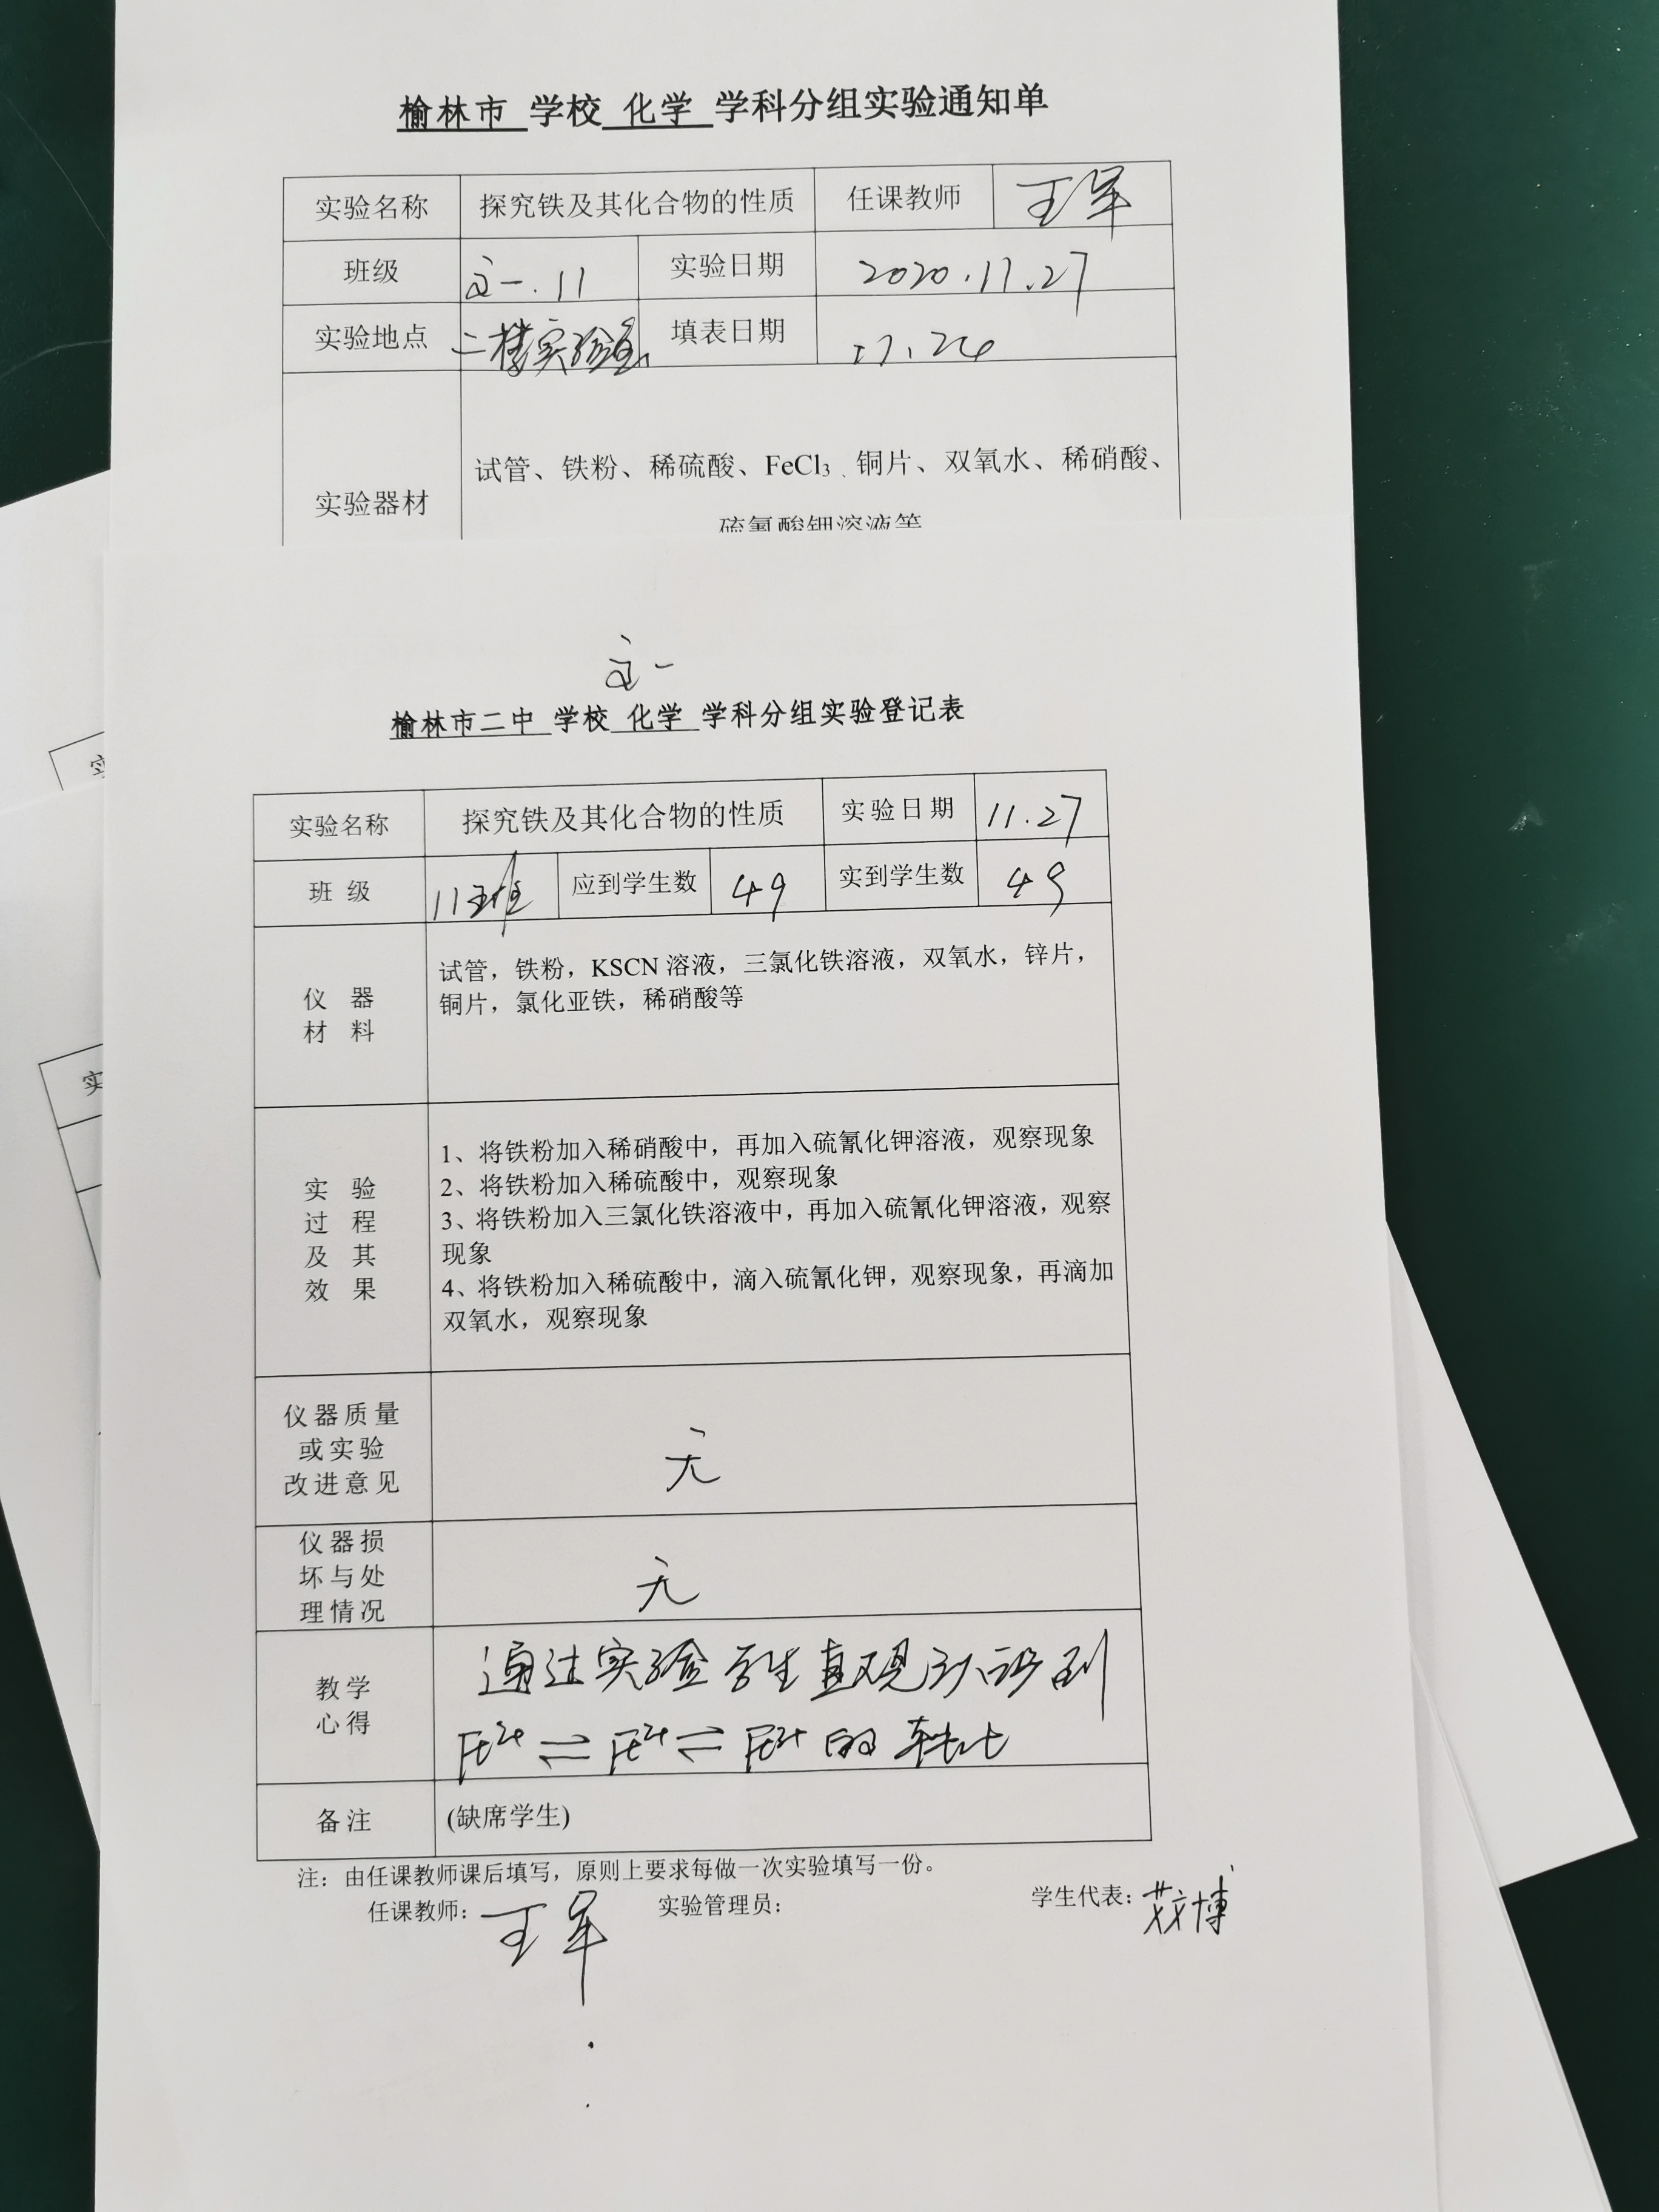 榆林市 学校 化学 学科分组实验通知单
实验名称 探究铁及其化合物的性质 任课教师 王军
班级 高一.11 实验日期 2020.11.27
实验地点 二楼实验室 填表日期 11.24
试管、铁粉、稀硫酸、FeCl₃、铜片、双氧水、稀硝酸、
实验器材
硫氰酸钾溶液等
高一
榆林市二中 学校 化学 学科分组实验登记表
实验名称 探究铁及其化合物的性质 实验日期 11.27
班级 11班 应到学生数 49 实到学生数 49
仪器
材料
试管，铁粉，KSCN溶液，三氯化铁溶液，双氧水，锌片，
铜片，氯化亚铁，稀硝酸等
实验
过程
及其
效果
1、将铁粉加入稀硝酸中，再加入硫氰化钾溶液，观察现象
2、将铁粉加入稀硫酸中，观察现象
3、将铁粉加入三氯化铁溶液中，再加入硫氰化钾溶液，观察
现象
4、将铁粉加入稀硫酸中，滴入硫氰化钾，观察现象，再滴加
双氧水，观察现象
仪器质量
或实验
改进意见
无
仪器损
坏与处
理情况
无
教学
心得
通过实验学生直观认识到
的转化
备注 (缺席学生)
注：由任课教师课后填写，原则上要求每做一次实验填写一份。
任课教师：王军 实验管理员： 学生代表：博
实
实